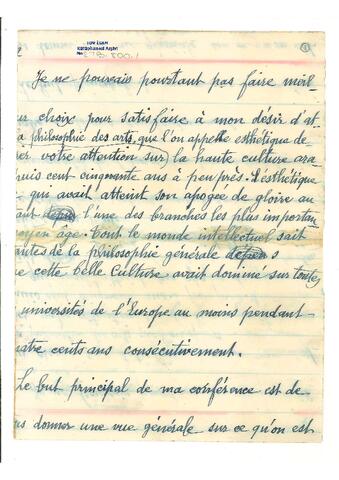 ①
TDV İSAM
Kütüphanesi Arşivi
No
Je ne pouvais pourtant pas faire meil-
us choix pour satisfaire à mon désir d'at-
a philosophie des arts, que l'on appelle esthétique de-
rer votre attention sur la haute culture ara
huis cent cinquante ans à peu près. L'esthétique
qui avait atteint son apogée de gloire au
aut l'une des branches les plus importan
oyen âge. Tout le monde intellectuel sait
antes de la philosophie générale
ue cette belle culture avait dominé sur toutes
universités de l'Europe au moins pendant
uatre cents ans consécutivement.
Le but principal de ma conférence est de
us donner une vue générale sur ce qu'on est